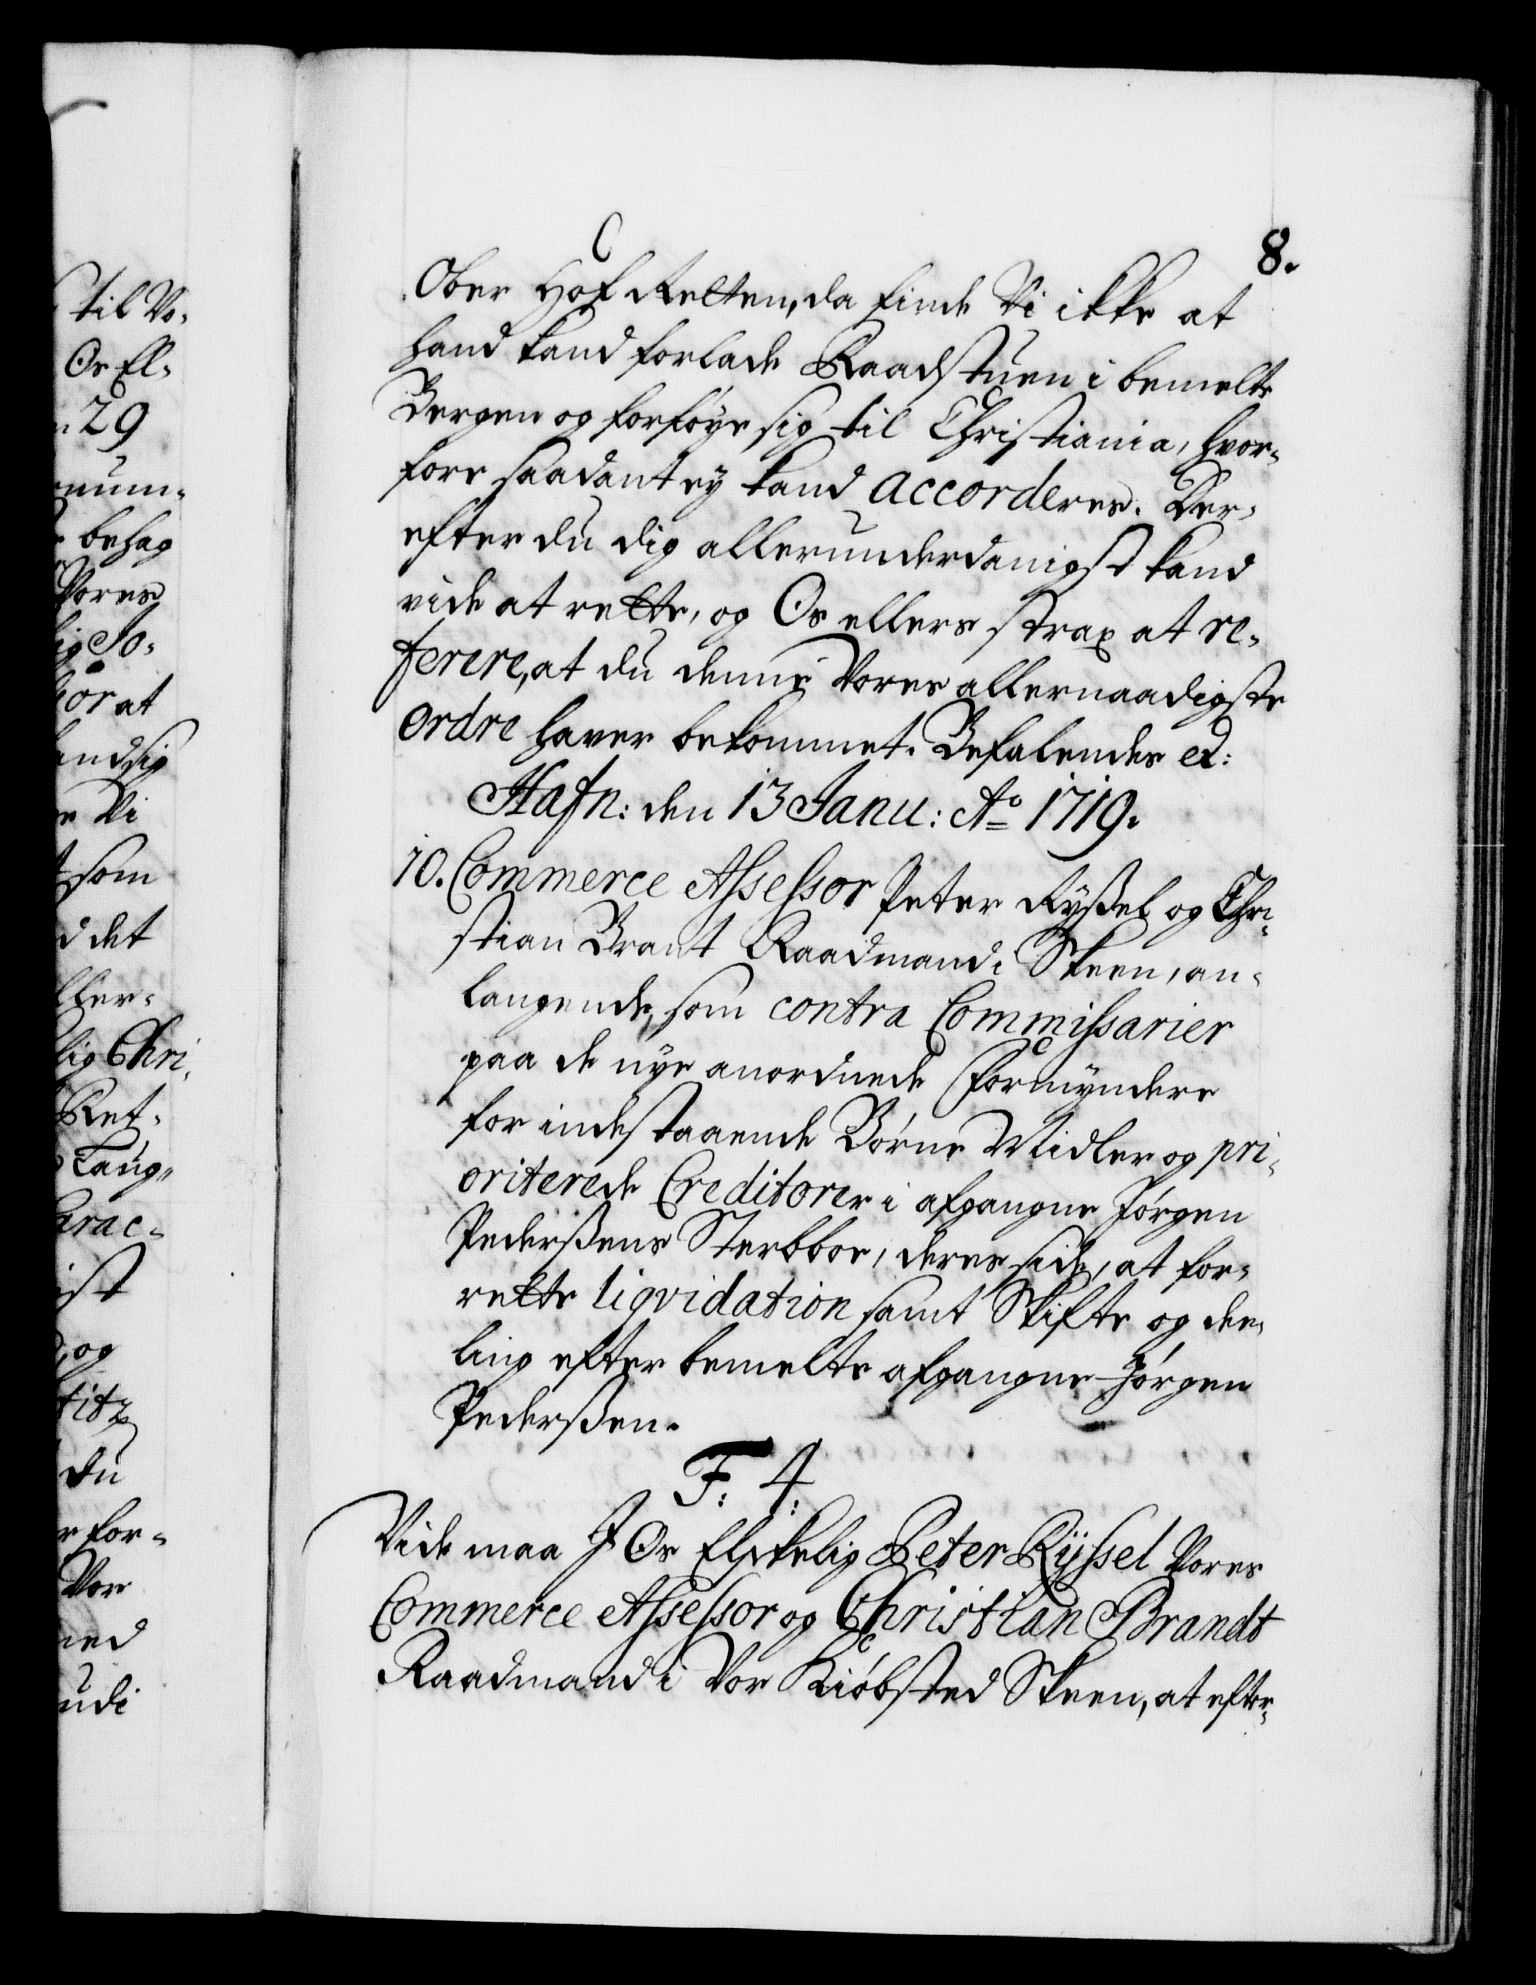 til Vo-
Os El-
29
num-
behag
Vores
lig Jo-
for at
andsig
Vi
som
d det
ller-
lig Chri-
Ret-
Laug-
arac-
ist
og
titz
du
for-
Vor
ned
udi
8.
Ober Hof Retten, da finde Vi ikke at
hand kand forlade Raadstuen i bemelte
Bergen og forføye sig til Christiania, hvor-
fore saadant ey kand accorderes. Der-
efter du dig allerunderdanigst kand
vide at rette, og Os ellers strax at re-
ferere, at du denne Vores allernaadigste
ordre haver bekommet. Befalendes etc:
Hafn: den 13 Janu: Ao 1719.
10. Commerce Assessor Peter Ryssel og Chri-
stian Brant Raadmand i Skeen, an-
langende, som contra Commissarier
paa de nye anordnede Formyndere
for indestaaende Børne Midler og pri-
oriterede Creditorer i afgangne Jørgen
Pederßens Sterbboe, deres side, at for-
rette liqvidation samt Skifte og dee-
ling efter bemelte afgangne Jørgen
Pederßen.
F: 4:
Vide maa I Os Elskelig Peter Ryssel Vores
Commerce Assessor og Christian Brandt
Raadmand i Vor Kiøbsted Skeen, at efter-